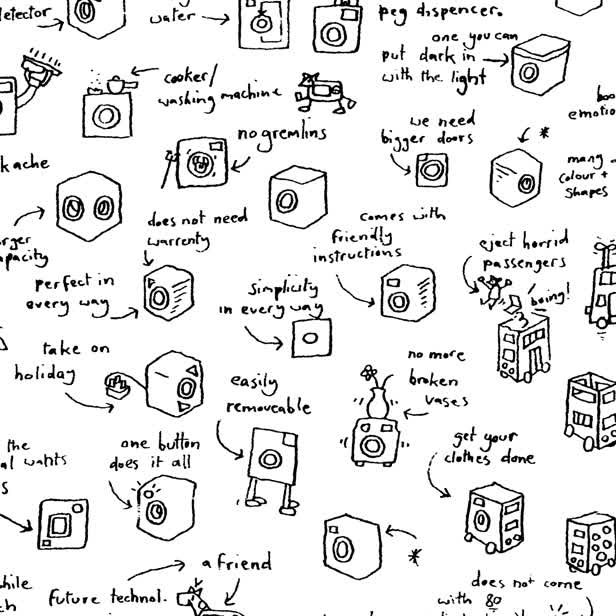 detector
water
peg dispencer.
one you can
put dark in
with the light
cooker/
washing machine
we need
bigger doors
no gremlins
many
colour +
shapes
does not need
warrenty
comes with
friendly
instructions
eject horrid
passengers
boing!
perfect in
every way
simplicity
in every way
take on
holiday
no more
broken
vases
easily
removeable
the
one button
does it all
get your
clothes done
*
*
a friend
future technol.
does not come
with 80